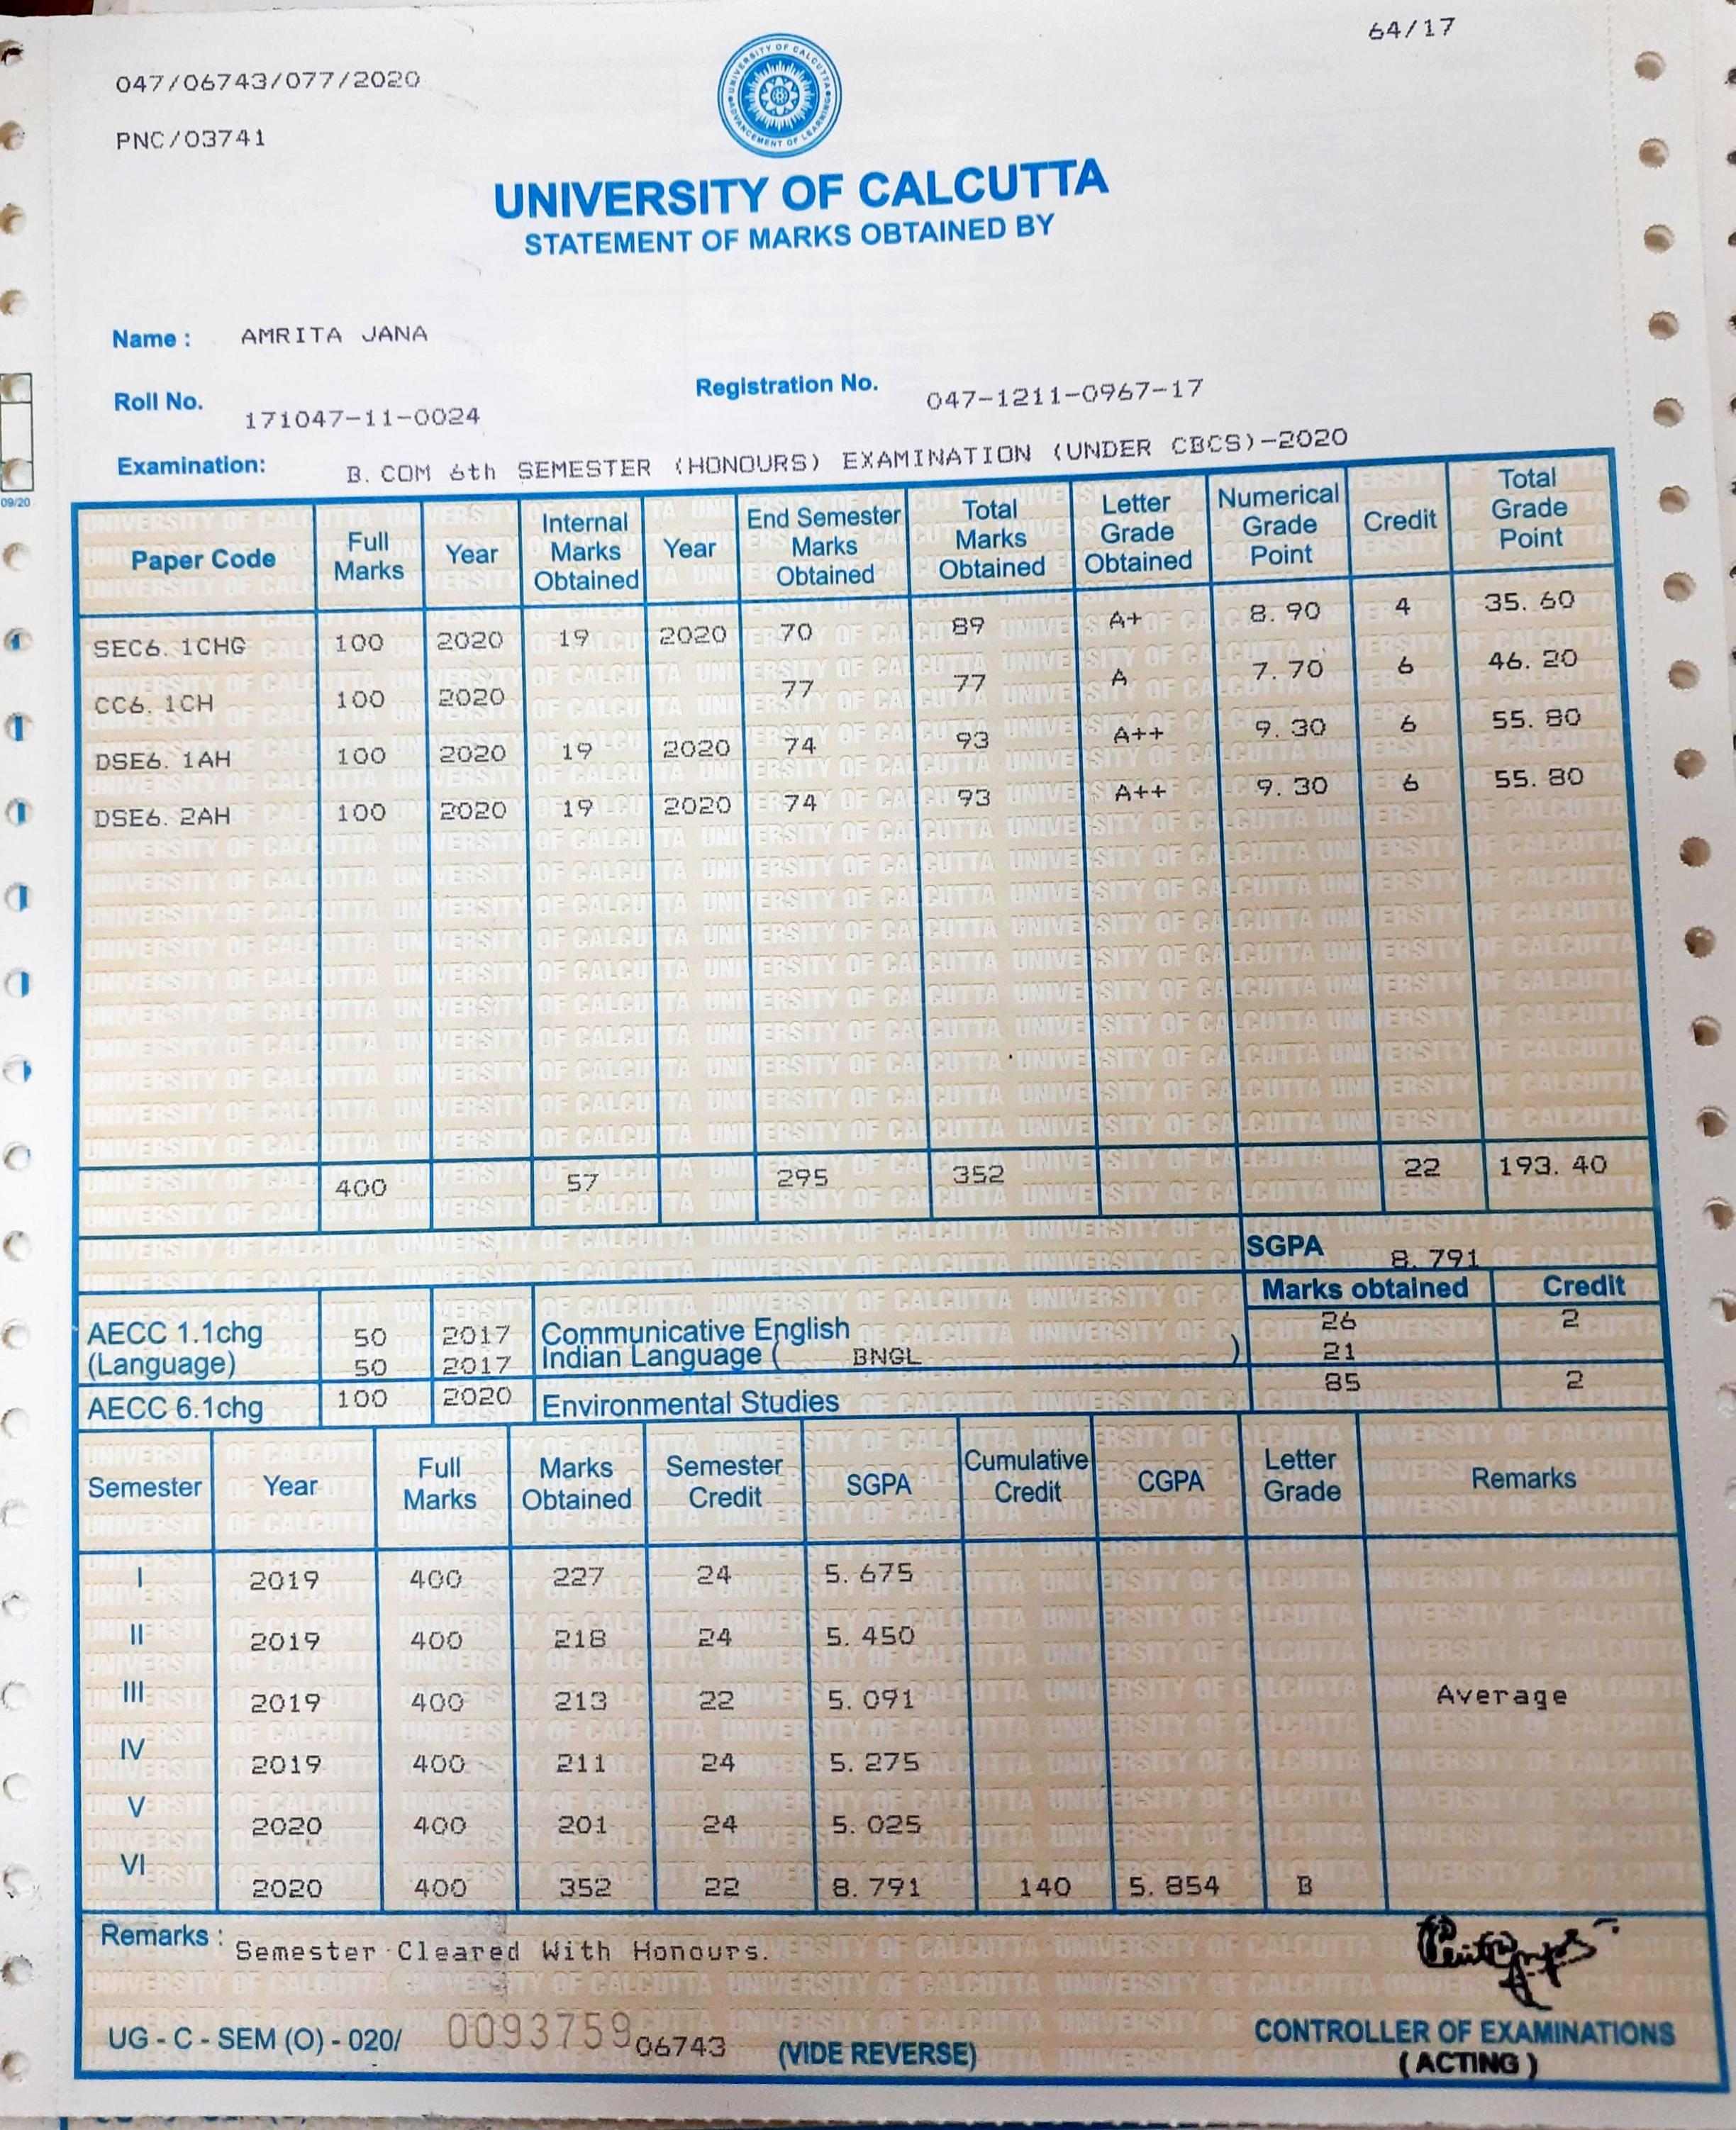 64/17
047/06743/077/2020
PNC/03741
UNIVERSITY OF CALCUTTA
ADVANCEMENT OF LEARNING
UNIVERSITY OF CALCUTTA
STATEMENT OF MARKS OBTAINED BY
Name : AMRITA JANA
Roll No. 171047-11-0024 Registration No. 047-1211-0967-17
Examination: B. COM 6th SEMESTER (HONOURS) EXAMINATION (UNDER CBCS)-2020
09/20
Paper Code Full Marks Year Internal Marks Obtained Year End Semester Marks Obtained Total Marks Obtained Letter Grade Obtained Numerical Grade Point Credit Total Grade Point
SEC6. 1CHG 100 2020 19 2020 70 89 A+ 8. 90 4 35. 60
CC6. 1CH 100 2020 77 77 A 7. 70 6 46. 20
DSE6. 1AH 100 2020 19 2020 74 93 A++ 9. 30 6 55. 80
DSE6. 2AH 100 2020 19 2020 74 93 A++ 9. 30 6 55. 80
400 57 295 352 22 193. 40
SGPA 8. 791
Marks obtained Credit
AECC 1.1chg 50 2017 Communicative English 26 2
(Language) 50 2017 Indian Language ( BNGL ) 21
AECC 6.1chg 100 2020 Environmental Studies 85 2
Semester Year Full Marks Marks Obtained Semester Credit SGPA Cumulative Credit CGPA Letter Grade Remarks
I 2019 400 227 24 5. 675
II 2019 400 218 24 5. 450
III 2019 400 213 22 5. 091 Average
IV 2019 400 211 24 5. 275
V 2020 400 201 24 5. 025
VI 2020 400 352 22 8. 791 140 5. 854 B
Remarks : Semester Cleared With Honours.
UG - C - SEM (O) - 020/ 0093759 06743 (VIDE REVERSE)
CONTROLLER OF EXAMINATIONS
( ACTING )